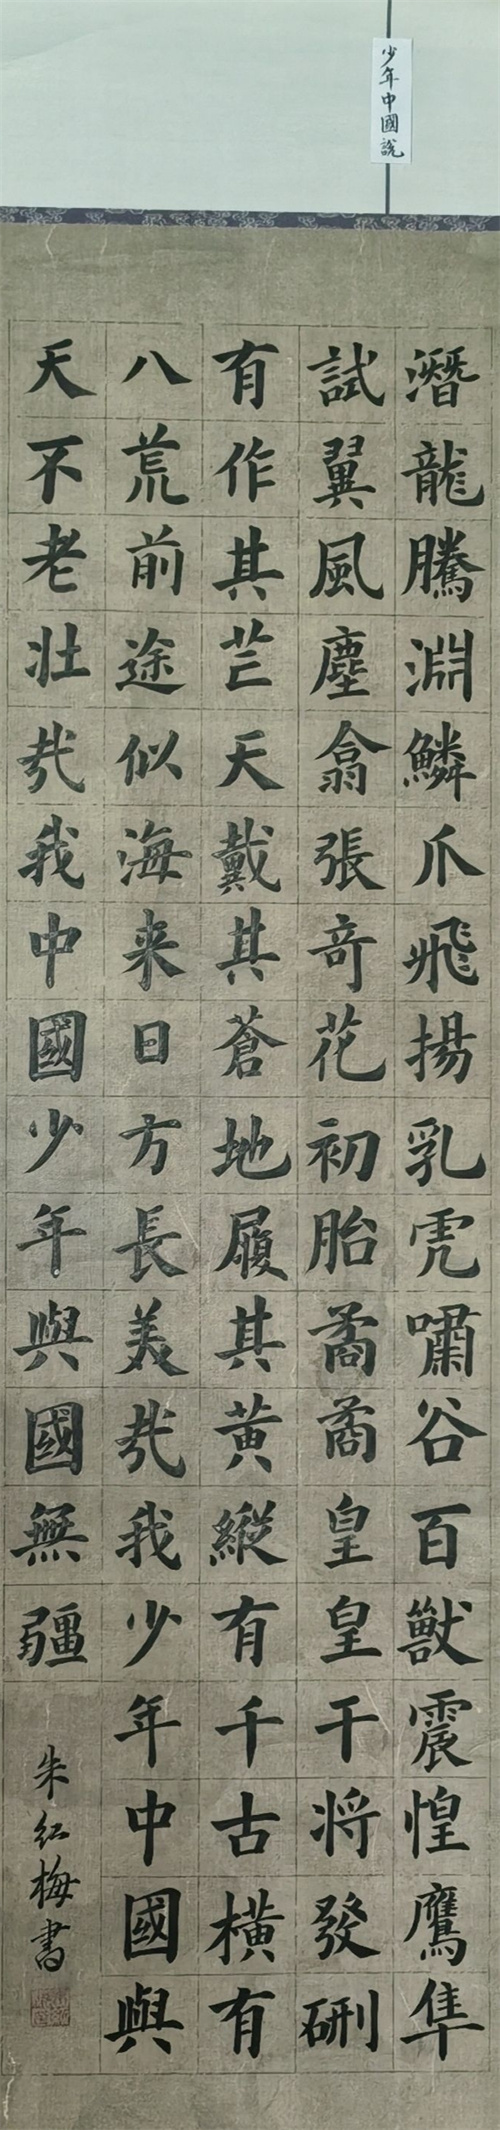 少年中國說
潛龍騰淵鱗爪飛揚乳虎嘯谷百獸震惶鷹隼
試翼風塵翕張奇花初胎矞矞皇皇干將發硎
有作其芒天戴其蒼地履其黃縱有千古橫有
八荒前途似海来日方長美哉我少年中國與
天不老壯哉我中國少年與國無疆
朱紅梅書